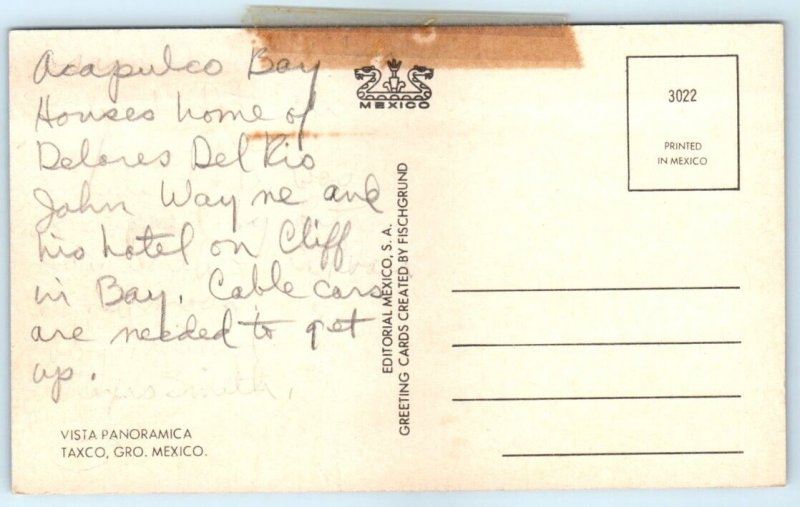 Acapulco Bay
Houses home of
Delores Del Rio
John Wayne and
his hotel on Cliff
in Bay. Cable cars
are needed to get
up.
Smith,
VISTA PANORAMICA
TAXCO, GRO. MEXICO.
MEXICO
EDITORIAL MEXICO, S. A.
GREETING CARDS CREATED BY FISCHGRUND
3022
PRINTED
IN MEXICO